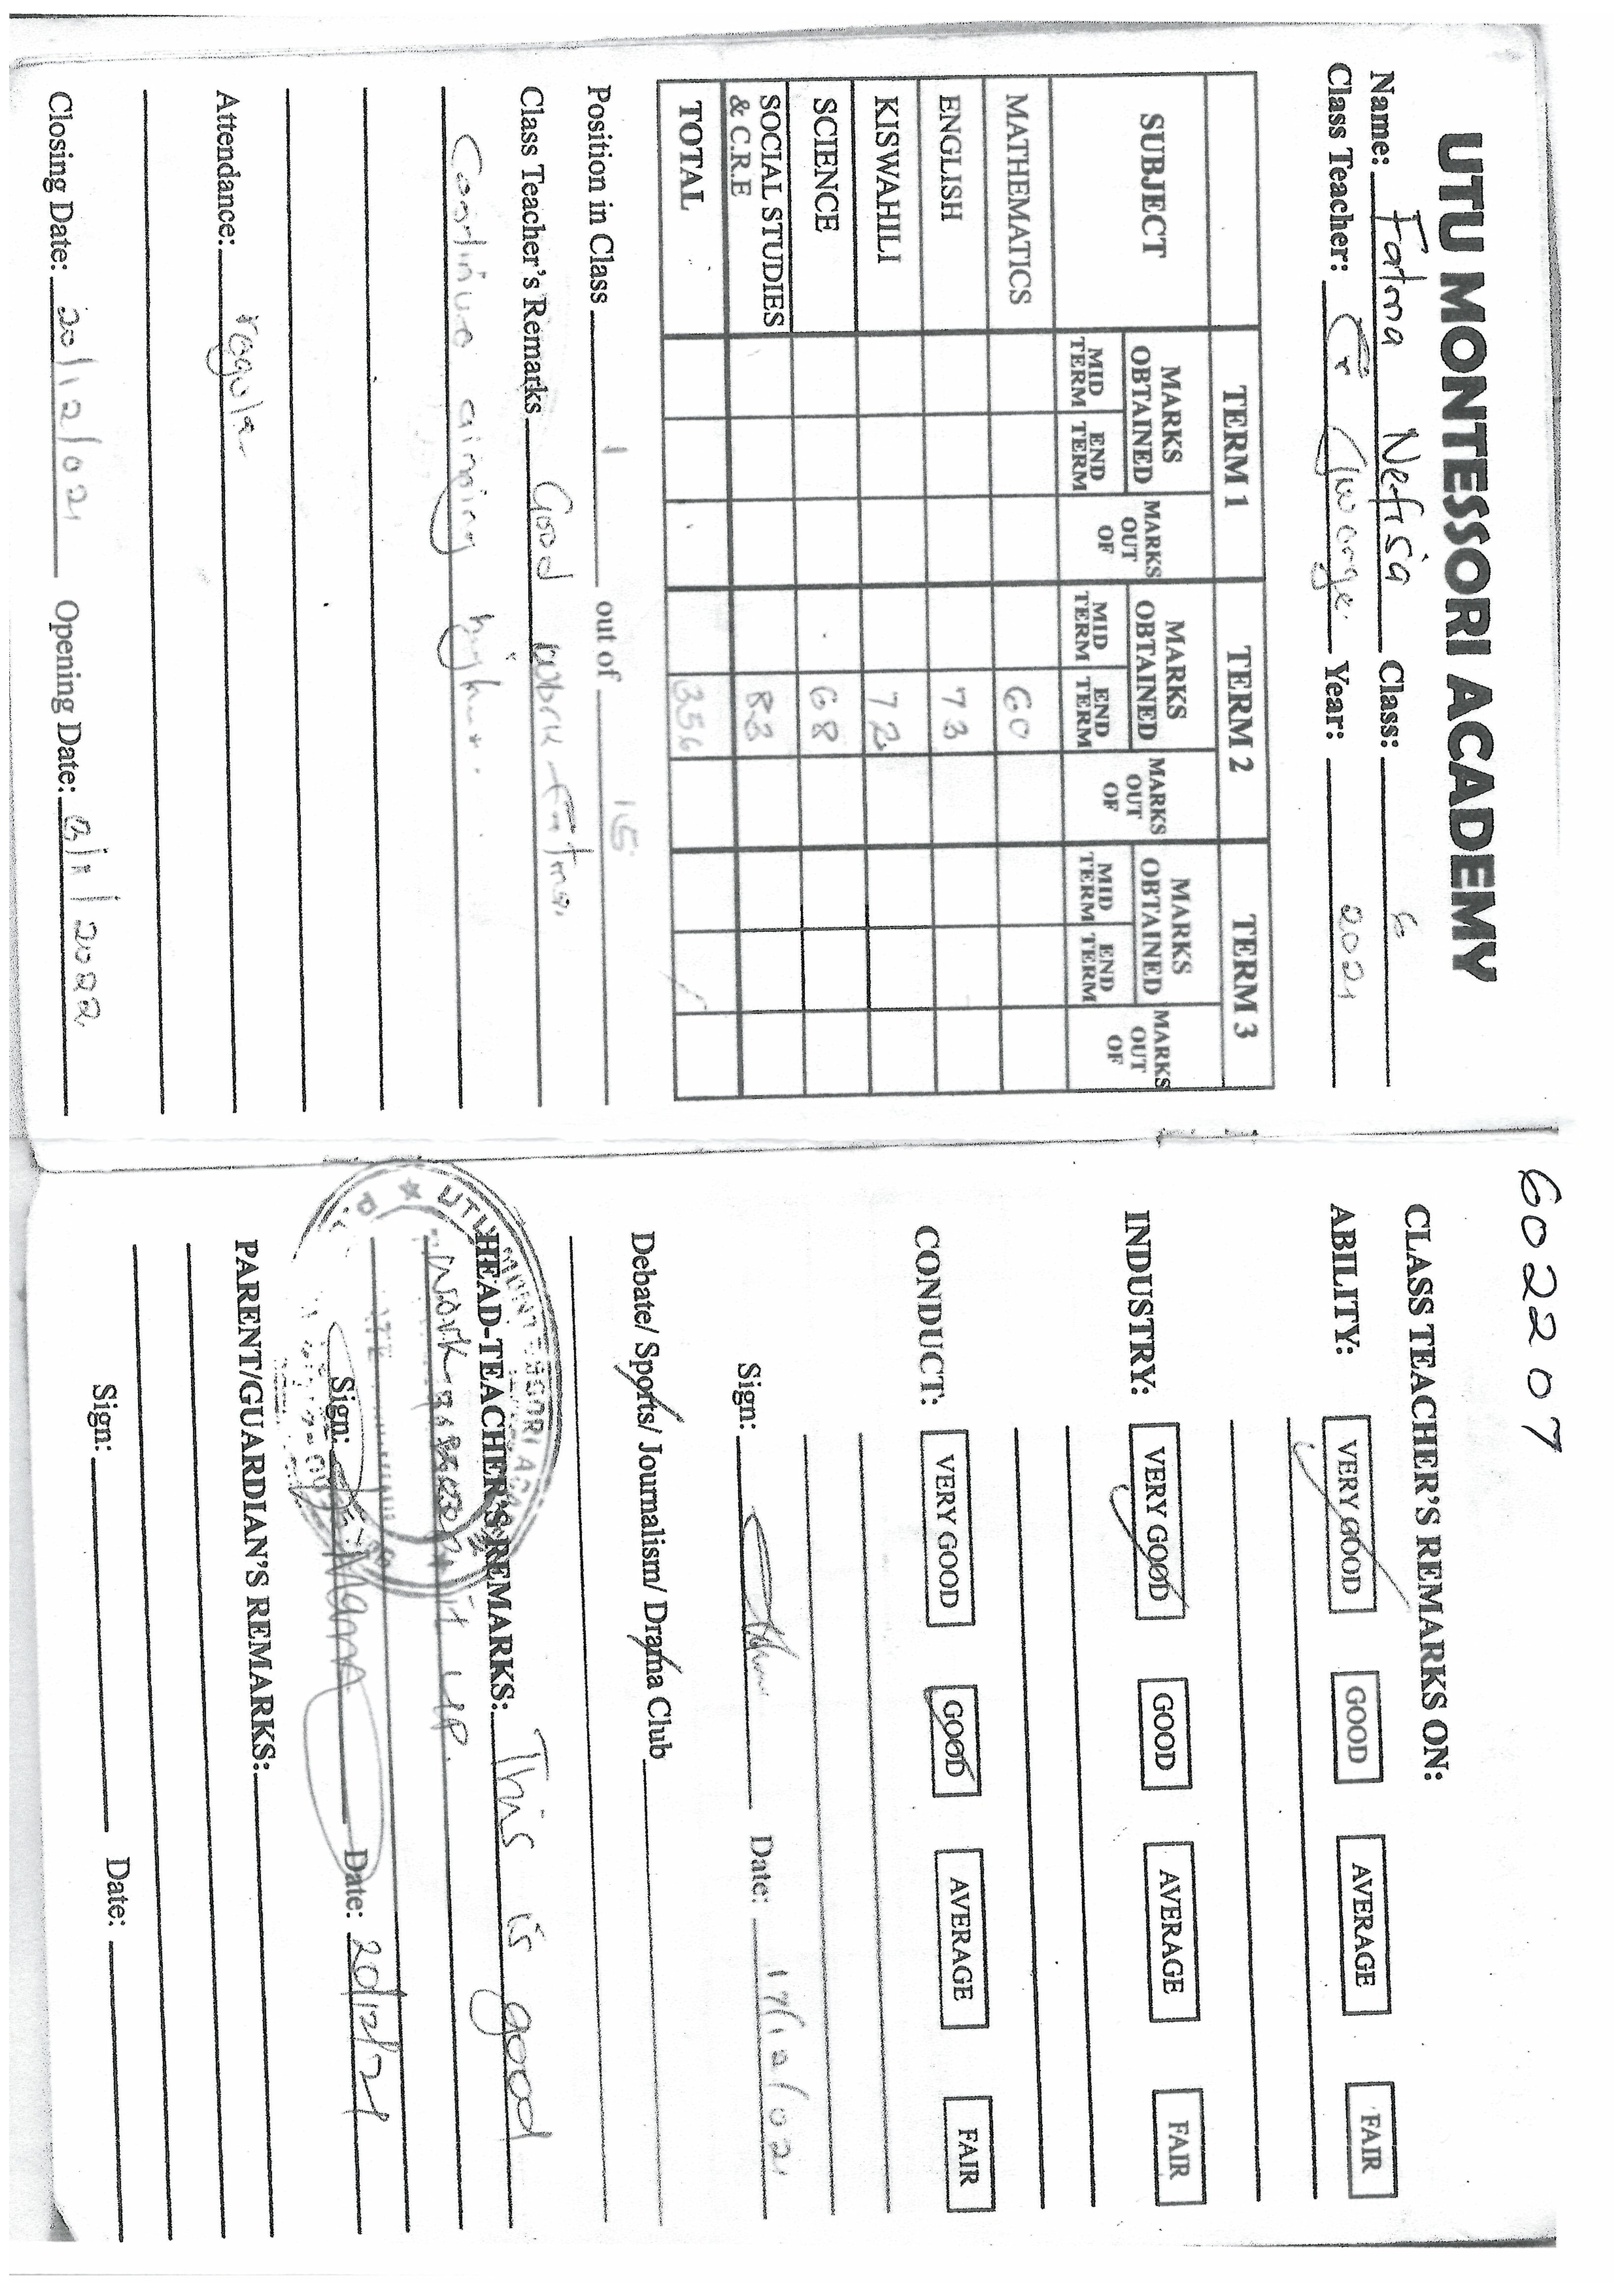 UTU MONTESSORI ACADEMY
Name: Fatma Nefisa Class: 6
Class Teacher: Tr Year: 2021
TERM 1 TERM 2 TERM 3
SUBJECT MARKS OBTAINED MARKS OUT OF MARKS OBTAINED MARKS OUT OF MARKS OBTAINED MARKS OUT OF
MID TERM END TERM MID TERM END TERM MID TERM END TERM
MATHEMATICS 60
ENGLISH 73
KISWAHILI 72
SCIENCE 68
SOCIAL STUDIES & C.R.E 83
TOTAL 356
Position in Class 1 out of 15
Class Teacher's Remarks Good work Fatma.
Continue aiming higher.
Attendance: regular
Closing Date: 20/12/021 Opening Date: 3/1/2022
602207
CLASS TEACHER'S REMARKS ON:
ABILITY: VERY GOOD GOOD AVERAGE FAIR
INDUSTRY: VERY GOOD GOOD AVERAGE FAIR
CONDUCT: VERY GOOD GOOD AVERAGE FAIR
Sign: Date: 17/12/021
Debate/ Sports/ Journalism/ Drama Club
HEAD-TEACHER'S REMARKS: This is good
work up.
Sign: Date: 20/12/21
PARENT/GUARDIAN'S REMARKS:
Sign: Date: